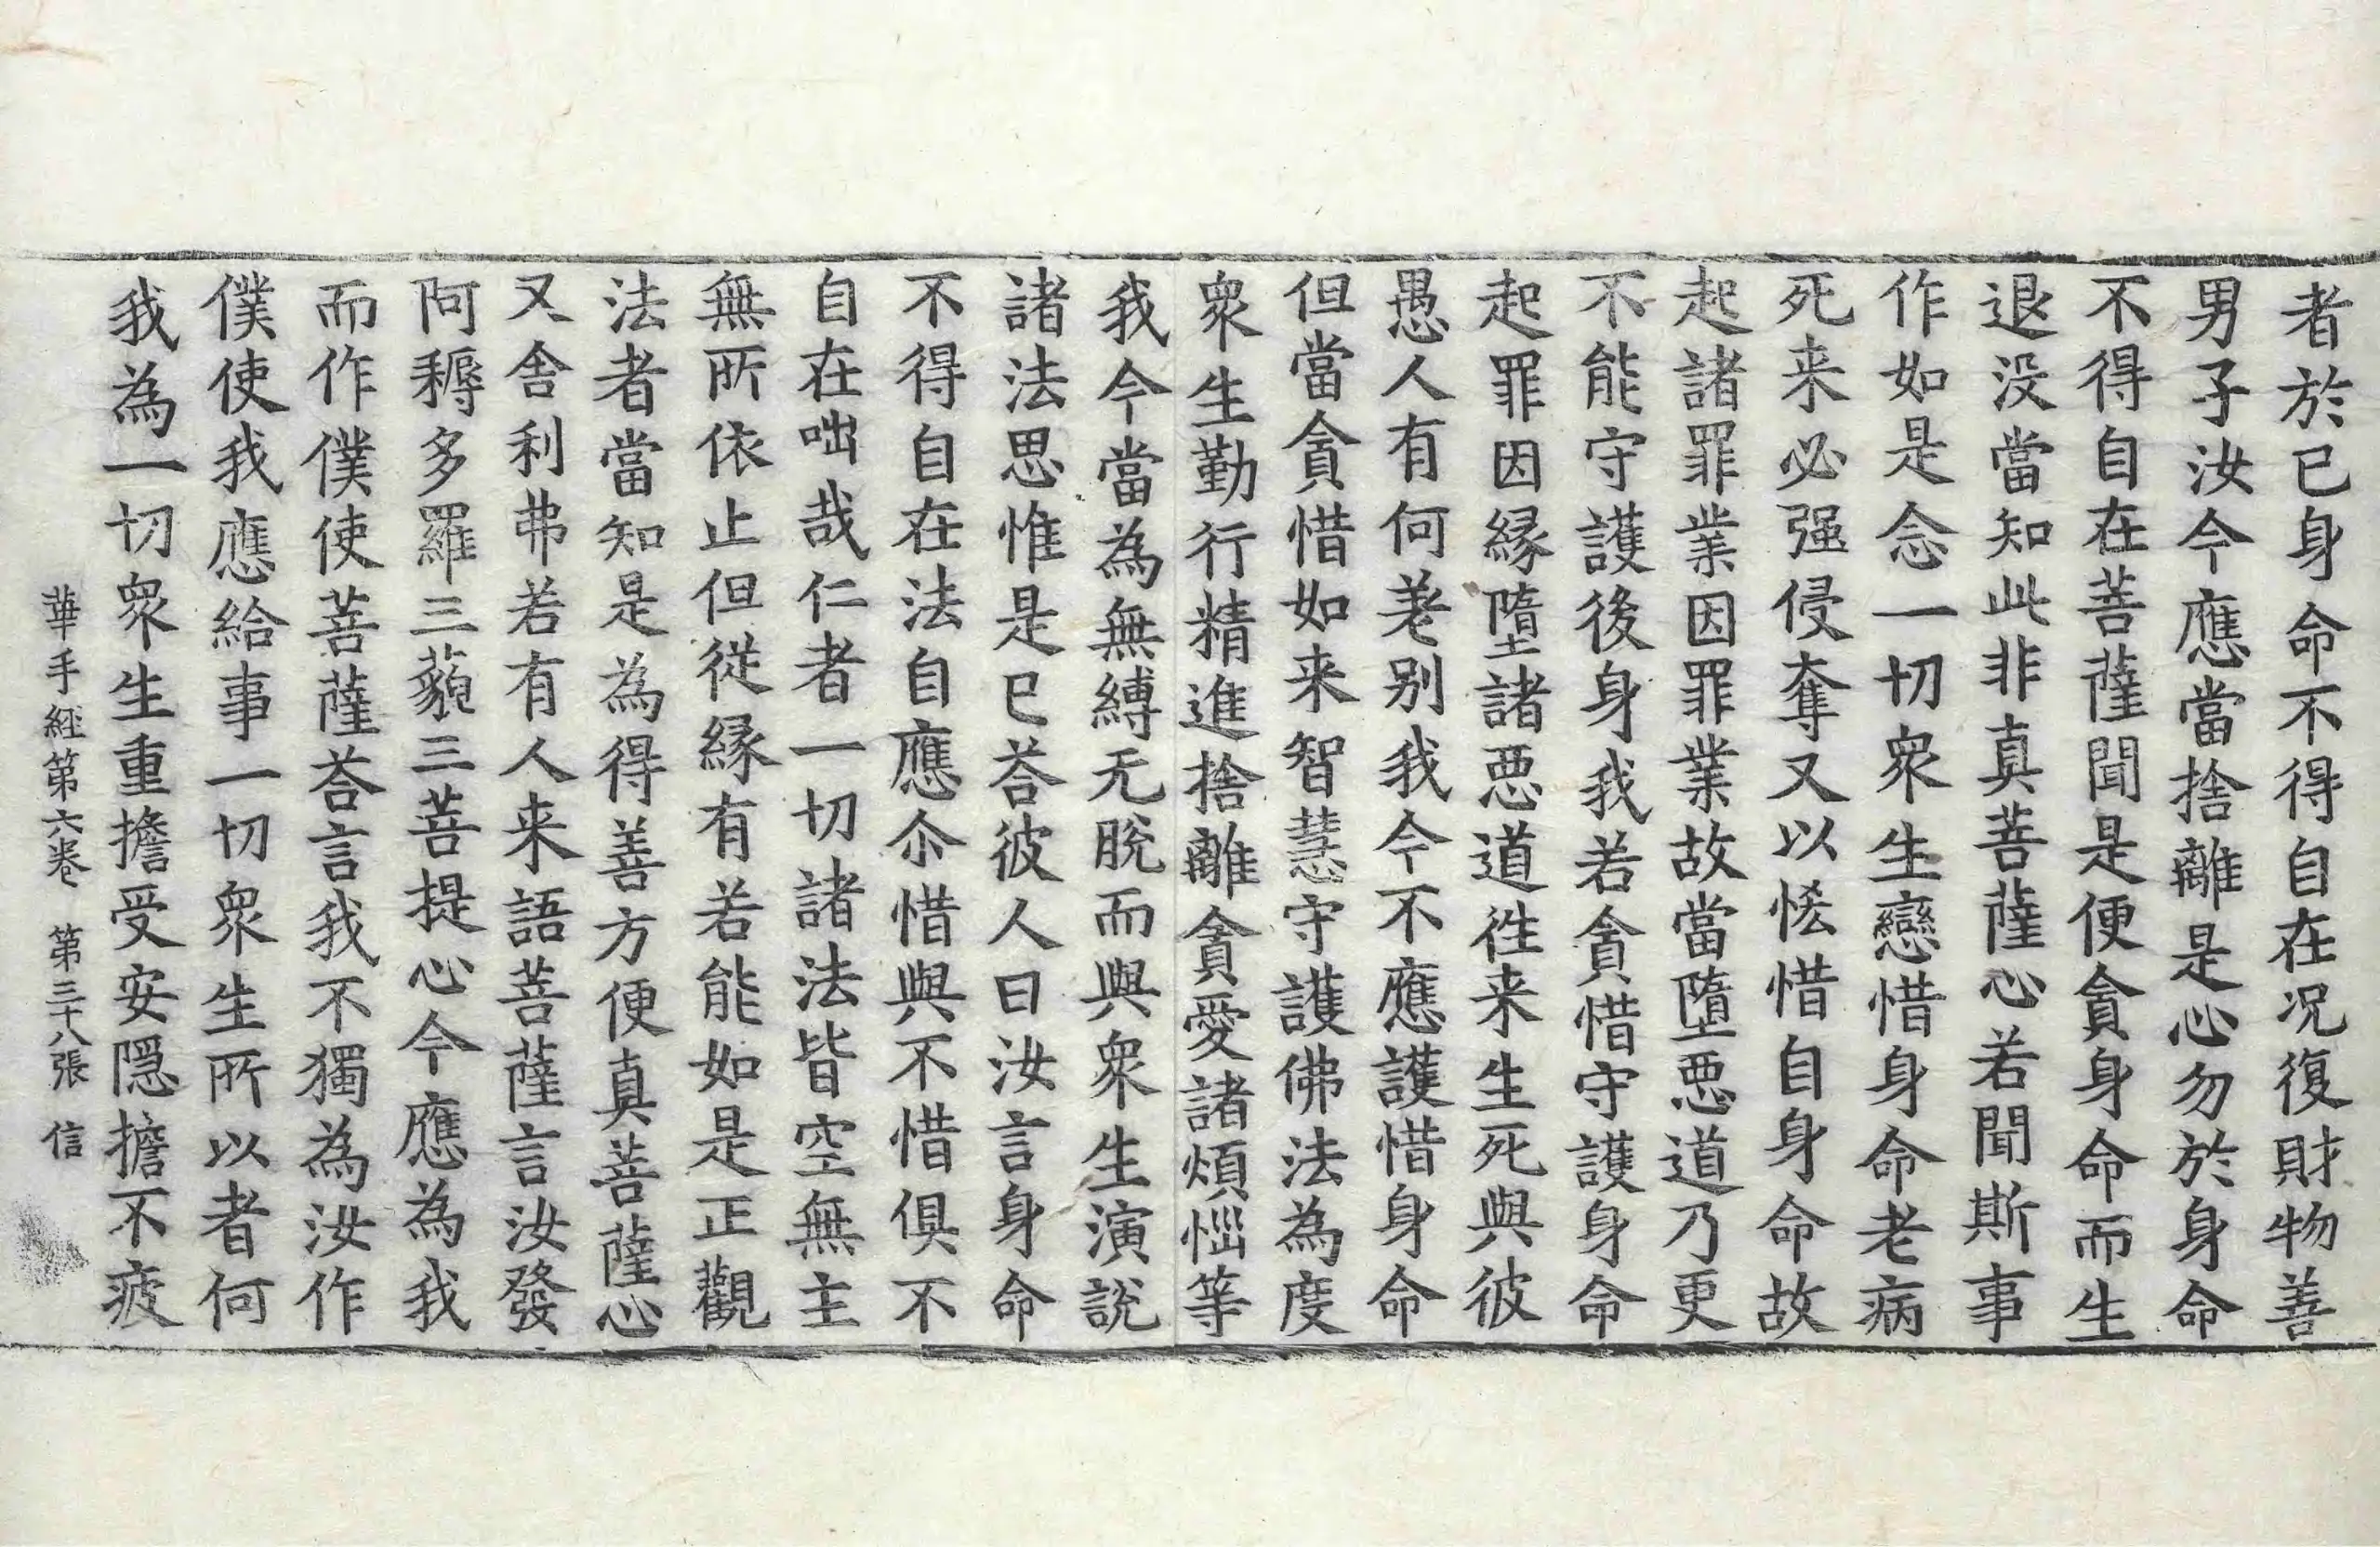 者於已身命不得自在况復財物善
男子汝今應當捨離是心勿於身命
不得自在菩薩聞是便貪身命而生
退没當知此非真菩薩心若聞斯事
作如是念一切衆生戀惜身命老病
死来必强侵奪又以悋惜自身命故
起諸罪業因罪業故當墮惡道乃更
不能守護後身我若貪惜守護身命
起罪因縁墮諸惡道往来生死與彼
愚人有何差別我今不應護惜身命
但當貪惜如来智慧守護佛法為度
衆生勤行精進捨離貪愛諸煩惱等
我今當為無縛无脫而與衆生演說
諸法思惟是已荅彼人曰汝言身命
不得自在法自應尒惜與不惜俱不
自在咄哉仁者一切諸法皆空無主
無所依止但從縁有若能如是正觀
法者當知是為得善方便真菩薩心
又舍利弗若有人来語菩薩言汝發
阿耨多羅三藐三菩提心今應為我
而作僕使菩薩荅言我不獨為汝作
僕使我應給事一切衆生所以者何
我為一切衆生重擔受安隱擔不疲
華手經第六卷 第三十八張 信